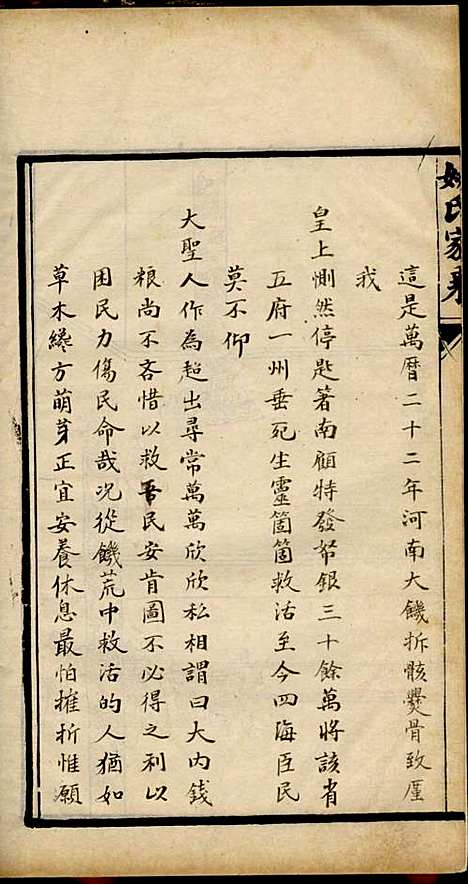 姚氏家乘
這是萬曆二十二年河南大饑拆骸爨骨致厪
我
皇上惻然停匙著南顧特發帑銀三十餘萬將該省
五府一州垂死生靈箇箇救活至今四海臣民
莫不仰
大聖人作為超出尋常萬萬欣欣私相謂曰大內錢
粮尚不吝惜以救民安肯圖不必得之利以
困民力傷民命哉况從饑荒中救活的人猶如
草木纔方萌芽正宜安養休息最怕摧折惟願